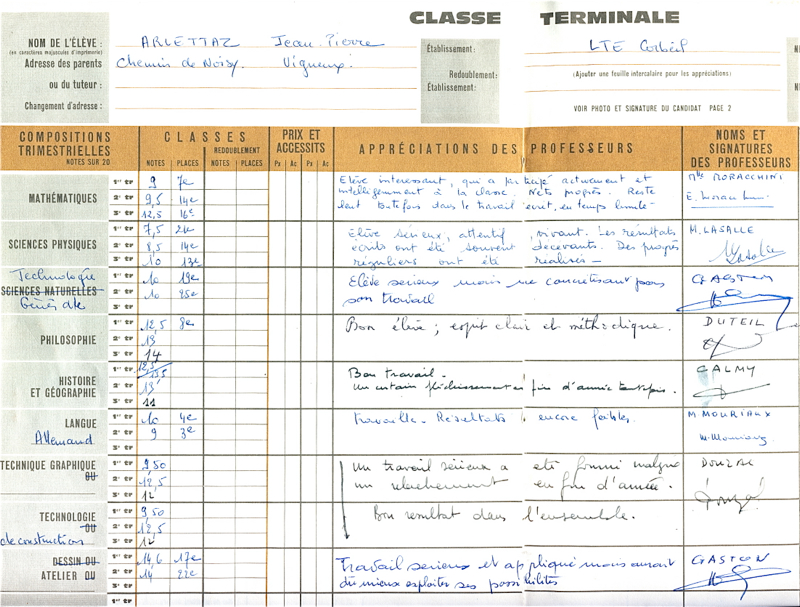 CLASSE TERMINALE
NOM DE L'ÉLÈVE : ARLETTAZ Jean-Pierre
(en caractères majuscules d'imprimerie)
Adresse des parents Chemin de Noisy. Vigneux.
ou du tuteur :
Changement d'adresse :
Établissement : LTE Corbeil
Redoublement :
Établissement :
(Ajouter une feuille intercalaire pour les appréciations)
VOIR PHOTO ET SIGNATURE DU CANDIDAT PAGE 2
COMPOSITIONS TRIMESTRIELLES NOTES SUR 20
CLASSES
REDOUBLEMENT
NOTES PLACES NOTES PLACES
PRIX ET ACCESSITS
Px Ac Px Ac
APPRÉCIATIONS DES PROFESSEURS
NOMS ET SIGNATURES DES PROFESSEURS
MATHÉMATIQUES
1er TR 9 7e
2e TR 9,5 14e
3e TR 12,5 16e
Elève intéressant, qui a participé activement et
intelligemment à la classe. Nets progrès. Reste
lent toutefois dans le travail écrit, en temps limité
Mlle MORACCHINI
SCIENCES PHYSIQUES
1er TR 7,5
2e TR 8,5 14e
3e TR 10 13e
Elève sérieux, attentif, vivant. Les résultats
écrits ont été souvent décevants. Des progrès
réguliers ont été réalisés —
M. LASALLE
Technologie
SCIENCES NATURELLES
Générale
1er TR 10 19e
2e TR 10 25e
3e TR
Elève sérieux mais ne concrétisant pas
son travail
GASTON
PHILOSOPHIE
1er TR 12,5 8e
2e TR 13
3e TR 14
Bon élève ; esprit clair et méthodique.
DUTEIL
HISTOIRE ET GÉOGRAPHIE
1er TR 12,5 / 13,5
2e TR 13
3e TR 11
Bon travail.
Un certain fléchissement en fin d'année toutefois.
CALMY
LANGUE
Allemand
1er TR 10 4e
2e TR 9 3e
3e TR
travaille. Résultats encore faibles.
M MOURIAUX
M. Mouriaux
TECHNIQUE GRAPHIQUE
OU
1er TR 9,50
2e TR 12,5
3e TR 12
Un travail sérieux a été fourni malgré
un relachement en fin d'année.
Bon resultat dans l'ensemble.
TECHNOLOGIE
OU
de construction
1er TR 9,50
2e TR 12,5
3e TR 12
DESSIN OU
ATELIER OU
1er TR 14,6 17e
2e TR 14 22e
3e TR
Travail serieux et appliqué mais aurait
du mieux exploiter ses possibilités
GASTON